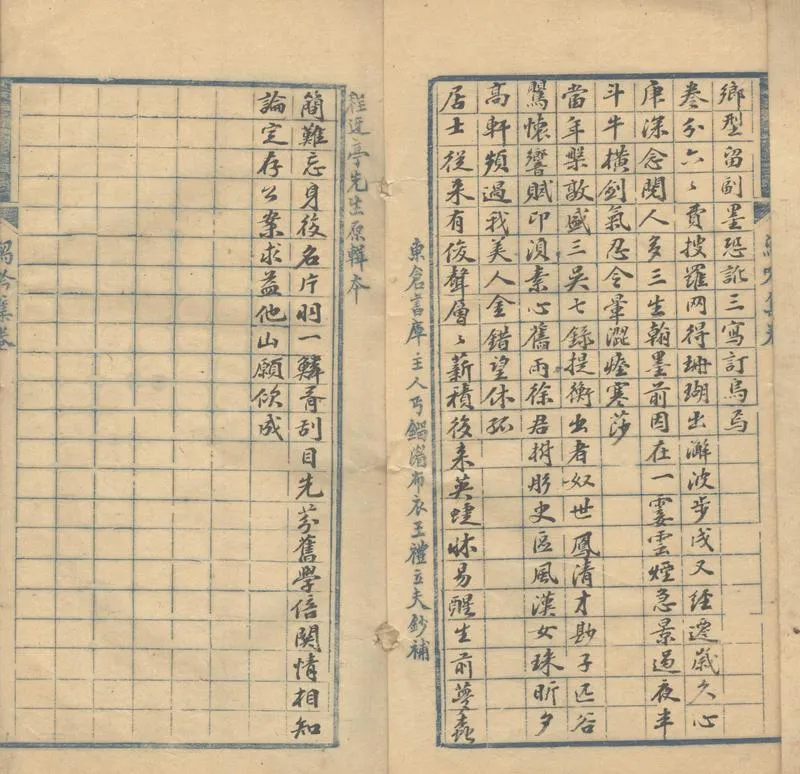 鄉型留副墨恐訛三寫訂烏焉
卷分六〻費搜羅网得珊瑚出澥波步成又經遷歲久心
庚深念閱人多三生翰墨前因在一霎雲煙急景過夜半
斗牛橫劍氣忍令暈澀蝕寒莎
當年槃敦盛三吳七錄提衡出者奴世鳳清才勘子匹谷
鶯懷響賦印須素心舊雨徐君樹彤史區風漢女珠昕夕
高軒頻過我美人金錯望休孤
居士從来有俊聲層〻薪積後来英蜨牀易醒生前夢蟲
東倉書庫主人丐錙濱布衣王禮立夫鈔補
程迓亭先生原輯本
簡難忘身後名片羽一鱗齊刮目先芬舊學倍関情相知
論定存公案求益他山願欣成
吟集卷